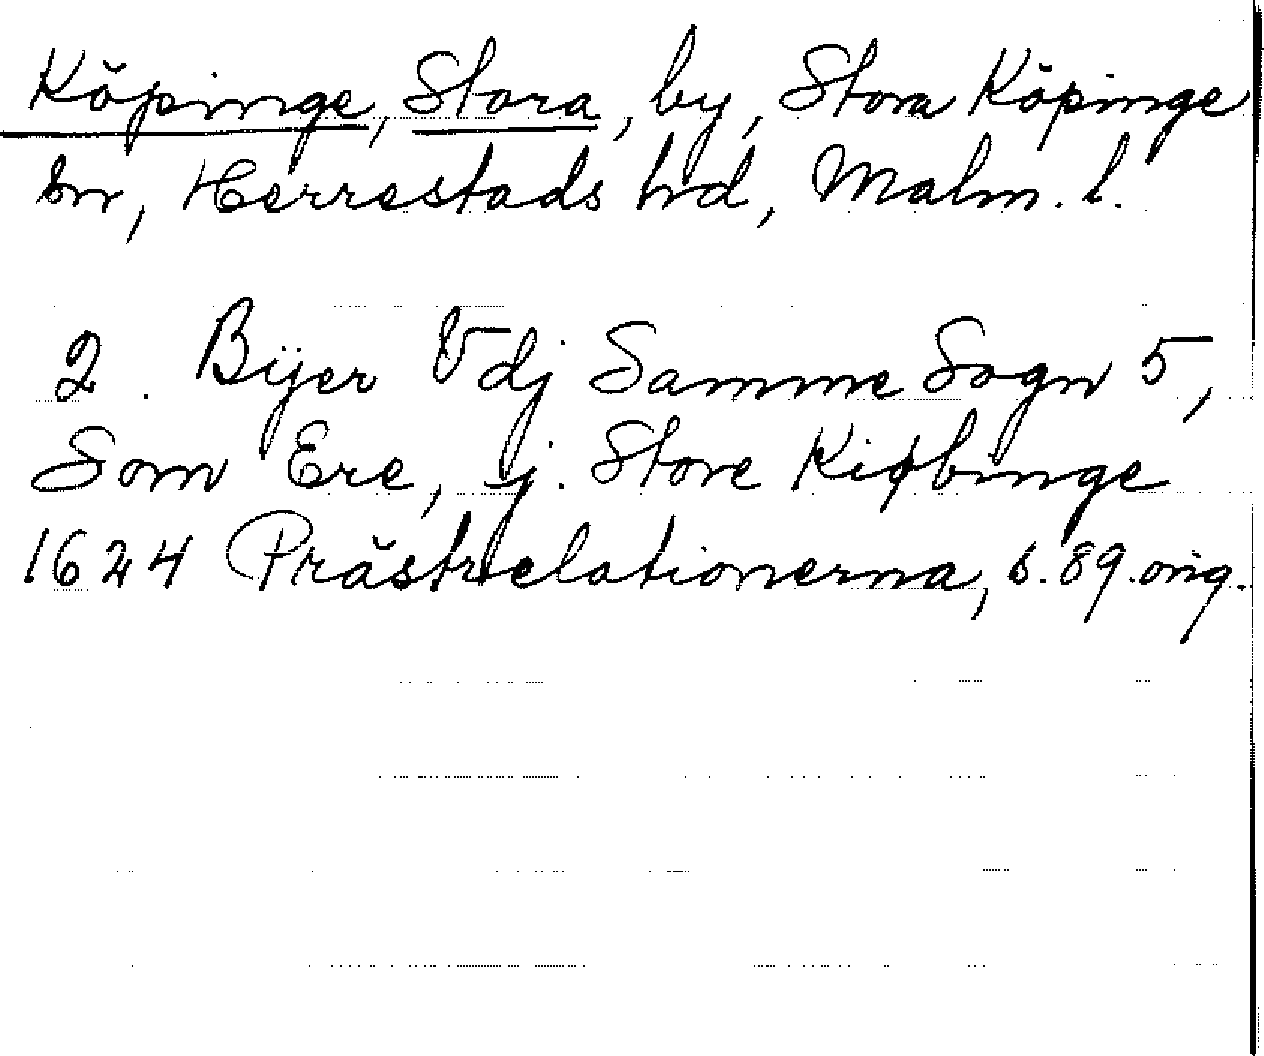 Köpinge, Stora, by, Stora Köpinge
sn, Herrestads hd, Malm. l.
2. Bÿer Vdj Samme Sogn 5,
Som Ere, j. Store Kiøbinge
1624 Prästrelationerna, s. 89 orig.